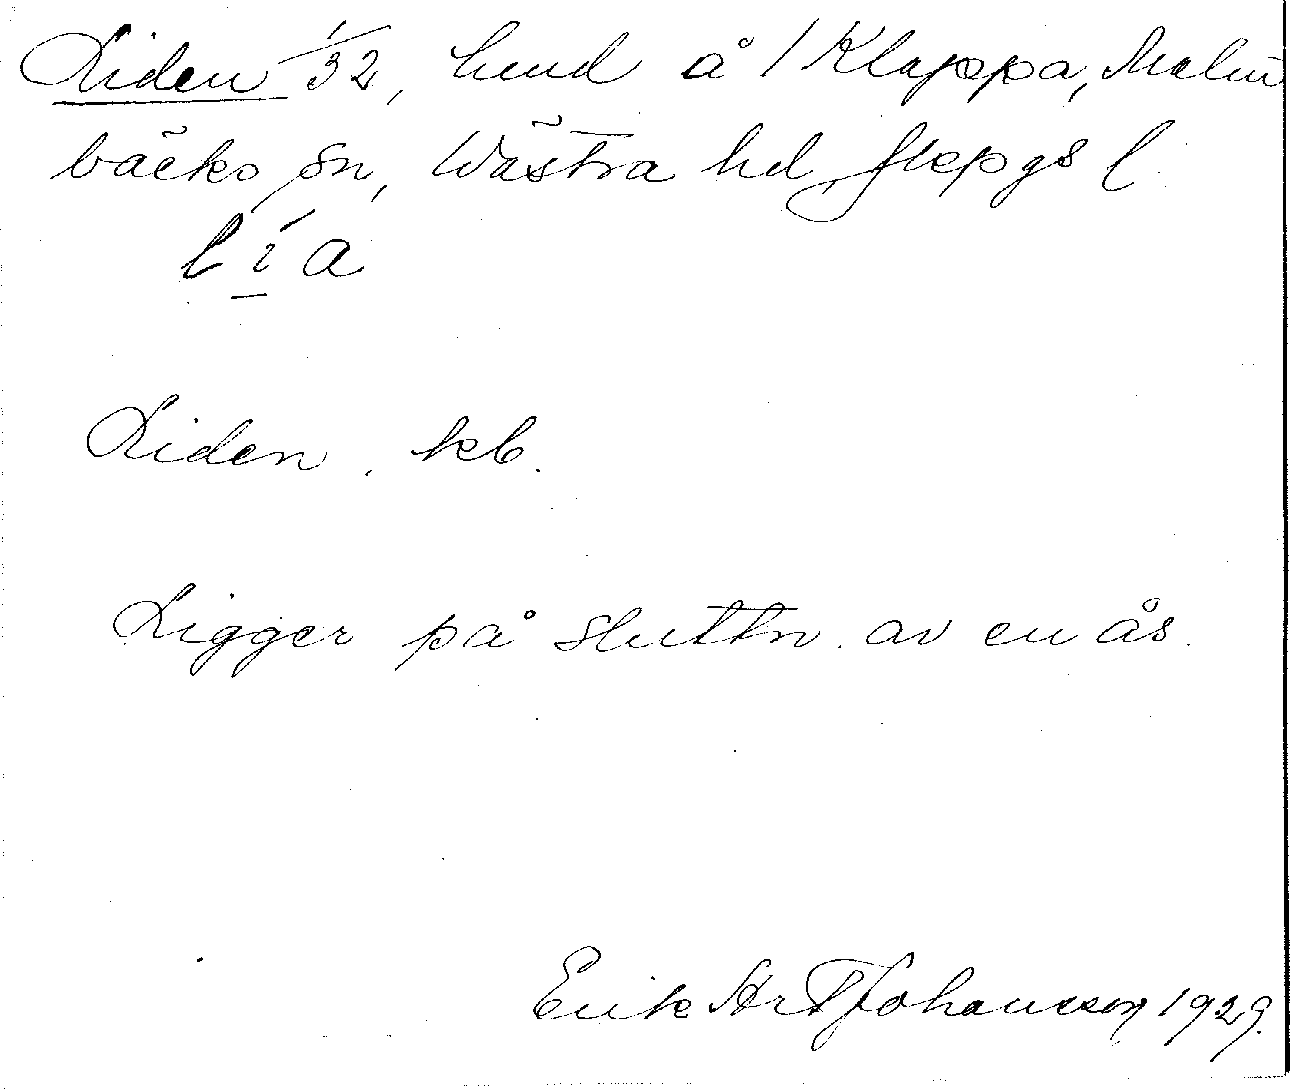 Liden 1/32, hmd å 1 Klappa, Malm
bäcks sn, Västra hd, Jkpgs l.
lia
Liden. kb.
Ligger på sluttn. av en ås.
Erik Johansson 1929.